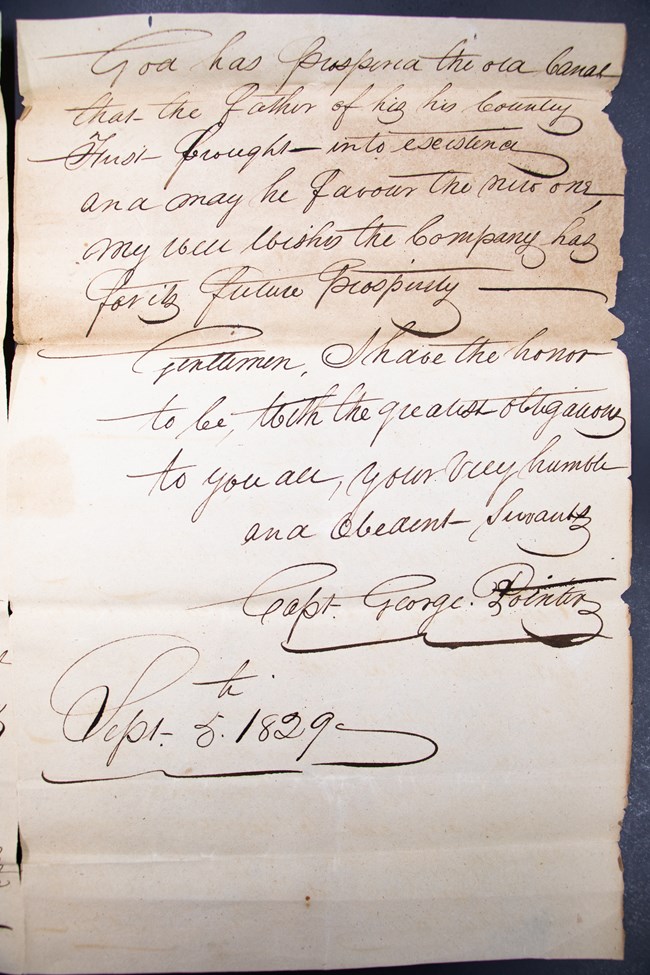 God has Prosperd the old Canal
that the Father of his his Country
First brought into existence
and may he favour the new one,
my well wishes the Company has
for its future Prosperty
Gentlemen, I have the honor
to be, With the greatest obligations
to you all, your Very humble
and Obedent Servant
Capt. George. Pointer
Sept. 5th. 1829